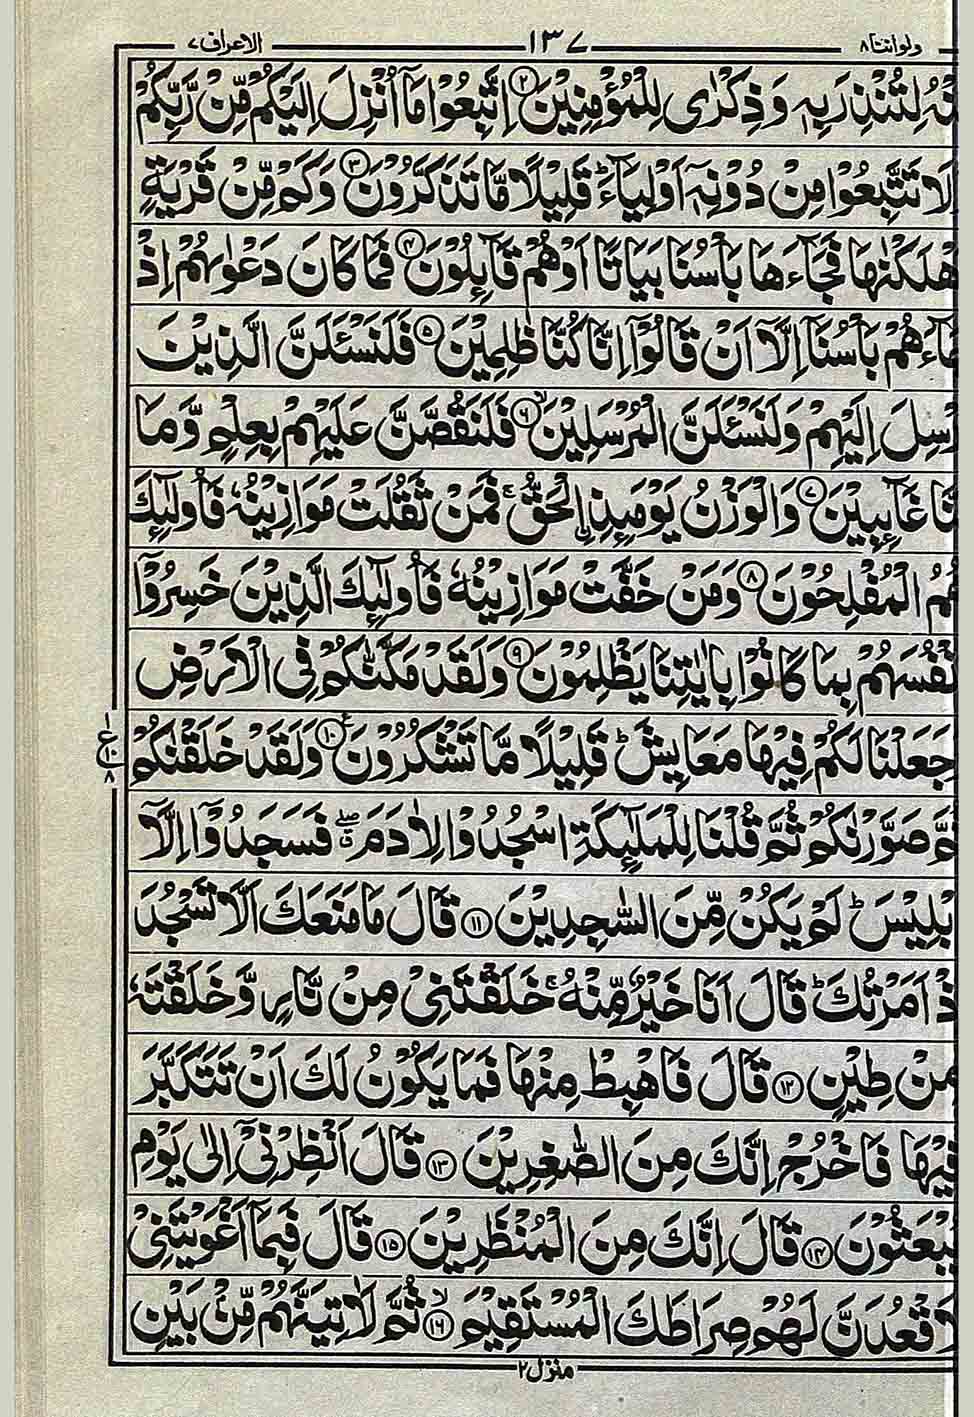 ولواننا ٨ ١٣٧ الاعراف ٧
نْهُ لِتُنْذِرَ بِهٖ وَذِكْرٰى لِلْمُؤْمِنِيْنَ ٢ اِتَّبِعُوْا مَآ اُنْزِلَ اِلَيْكُمْ مِّنْ رَّبِّكُمْ
لَا تَتَّبِعُوْا مِنْ دُوْنِهٖٓ اَوْلِيَآءَ ؕ قَلِيْلًا مَّا تَذَكَّرُوْنَ ٣ وَكَمْ مِّنْ قَرْيَةٍ
هْلَكْنٰهَا فَجَآءَهَا بَاْسُنَا بَيَاتًا اَوْ هُمْ قَآئِلُوْنَ ٤ فَمَا كَانَ دَعْوٰىهُمْ اِذْ
جَآءَهُمْ بَاْسُنَآ اِلَّآ اَنْ قَالُوْٓا اِنَّا كُنَّا ظٰلِمِيْنَ ٥ فَلَنَسْئَلَنَّ الَّذِيْنَ
رْسِلَ اِلَيْهِمْ وَلَنَسْئَلَنَّ الْمُرْسَلِيْنَ ۙ ٦ فَلَنَقُصَّنَّ عَلَيْهِمْ بِعِلْمٍ وَّمَا
نَّا غَآئِبِيْنَ ٧ وَالْوَزْنُ يَوْمَئِذِ ِۨالْحَقُّ ۚ فَمَنْ ثَقُلَتْ مَوَازِيْنُهٗ فَاُولٰٓئِكَ
هُمُ الْمُفْلِحُوْنَ ٨ وَمَنْ خَفَّتْ مَوَازِيْنُهٗ فَاُولٰٓئِكَ الَّذِيْنَ خَسِرُوْٓا
نْفُسَهُمْ بِمَا كَانُوْا بِاٰيٰتِنَا يَظْلِمُوْنَ ٩ وَلَقَدْ مَكَّنّٰكُمْ فِى الْاَرْضِ
جَعَلْنَا لَكُمْ فِيْهَا مَعَايِشَ ؕ قَلِيْلًا مَّا تَشْكُرُوْنَ ١٠ وَلَقَدْ خَلَقْنٰكُمْ
ع ١ ١٠ ٨
ثُمَّ صَوَّرْنٰكُمْ ثُمَّ قُلْنَا لِلْمَلٰٓئِكَةِ اسْجُدُوْا لِاٰدَمَ ۖ فَسَجَدُوْٓا اِلَّآ
بْلِيْسَ ؕ لَمْ يَكُنْ مِّنَ السّٰجِدِيْنَ ١١ قَالَ مَا مَنَعَكَ اَلَّا تَسْجُدَ
ذْ اَمَرْتُكَ ؕ قَالَ اَنَا خَيْرٌ مِّنْهُ ۚ خَلَقْتَنِىْ مِنْ نَّارٍ وَّخَلَقْتَهٗ
مِنْ طِيْنٍ ١٢ قَالَ فَاهْبِطْ مِنْهَا فَمَا يَكُوْنُ لَكَ اَنْ تَتَكَبَّرَ
فِيْهَا فَاخْرُجْ اِنَّكَ مِنَ الصّٰغِرِيْنَ ١٣ قَالَ اَنْظِرْنِىْٓ اِلٰى يَوْمِ
يُبْعَثُوْنَ ١٤ قَالَ اِنَّكَ مِنَ الْمُنْظَرِيْنَ ١٥ قَالَ فَبِمَآ اَغْوَيْتَنِىْ
لَاَقْعُدَنَّ لَهُمْ صِرَاطَكَ الْمُسْتَقِيْمَ ۙ ١٦ ثُمَّ لَاٰتِيَنَّهُمْ مِّنْۢ بَيْنِ
منزل ٢